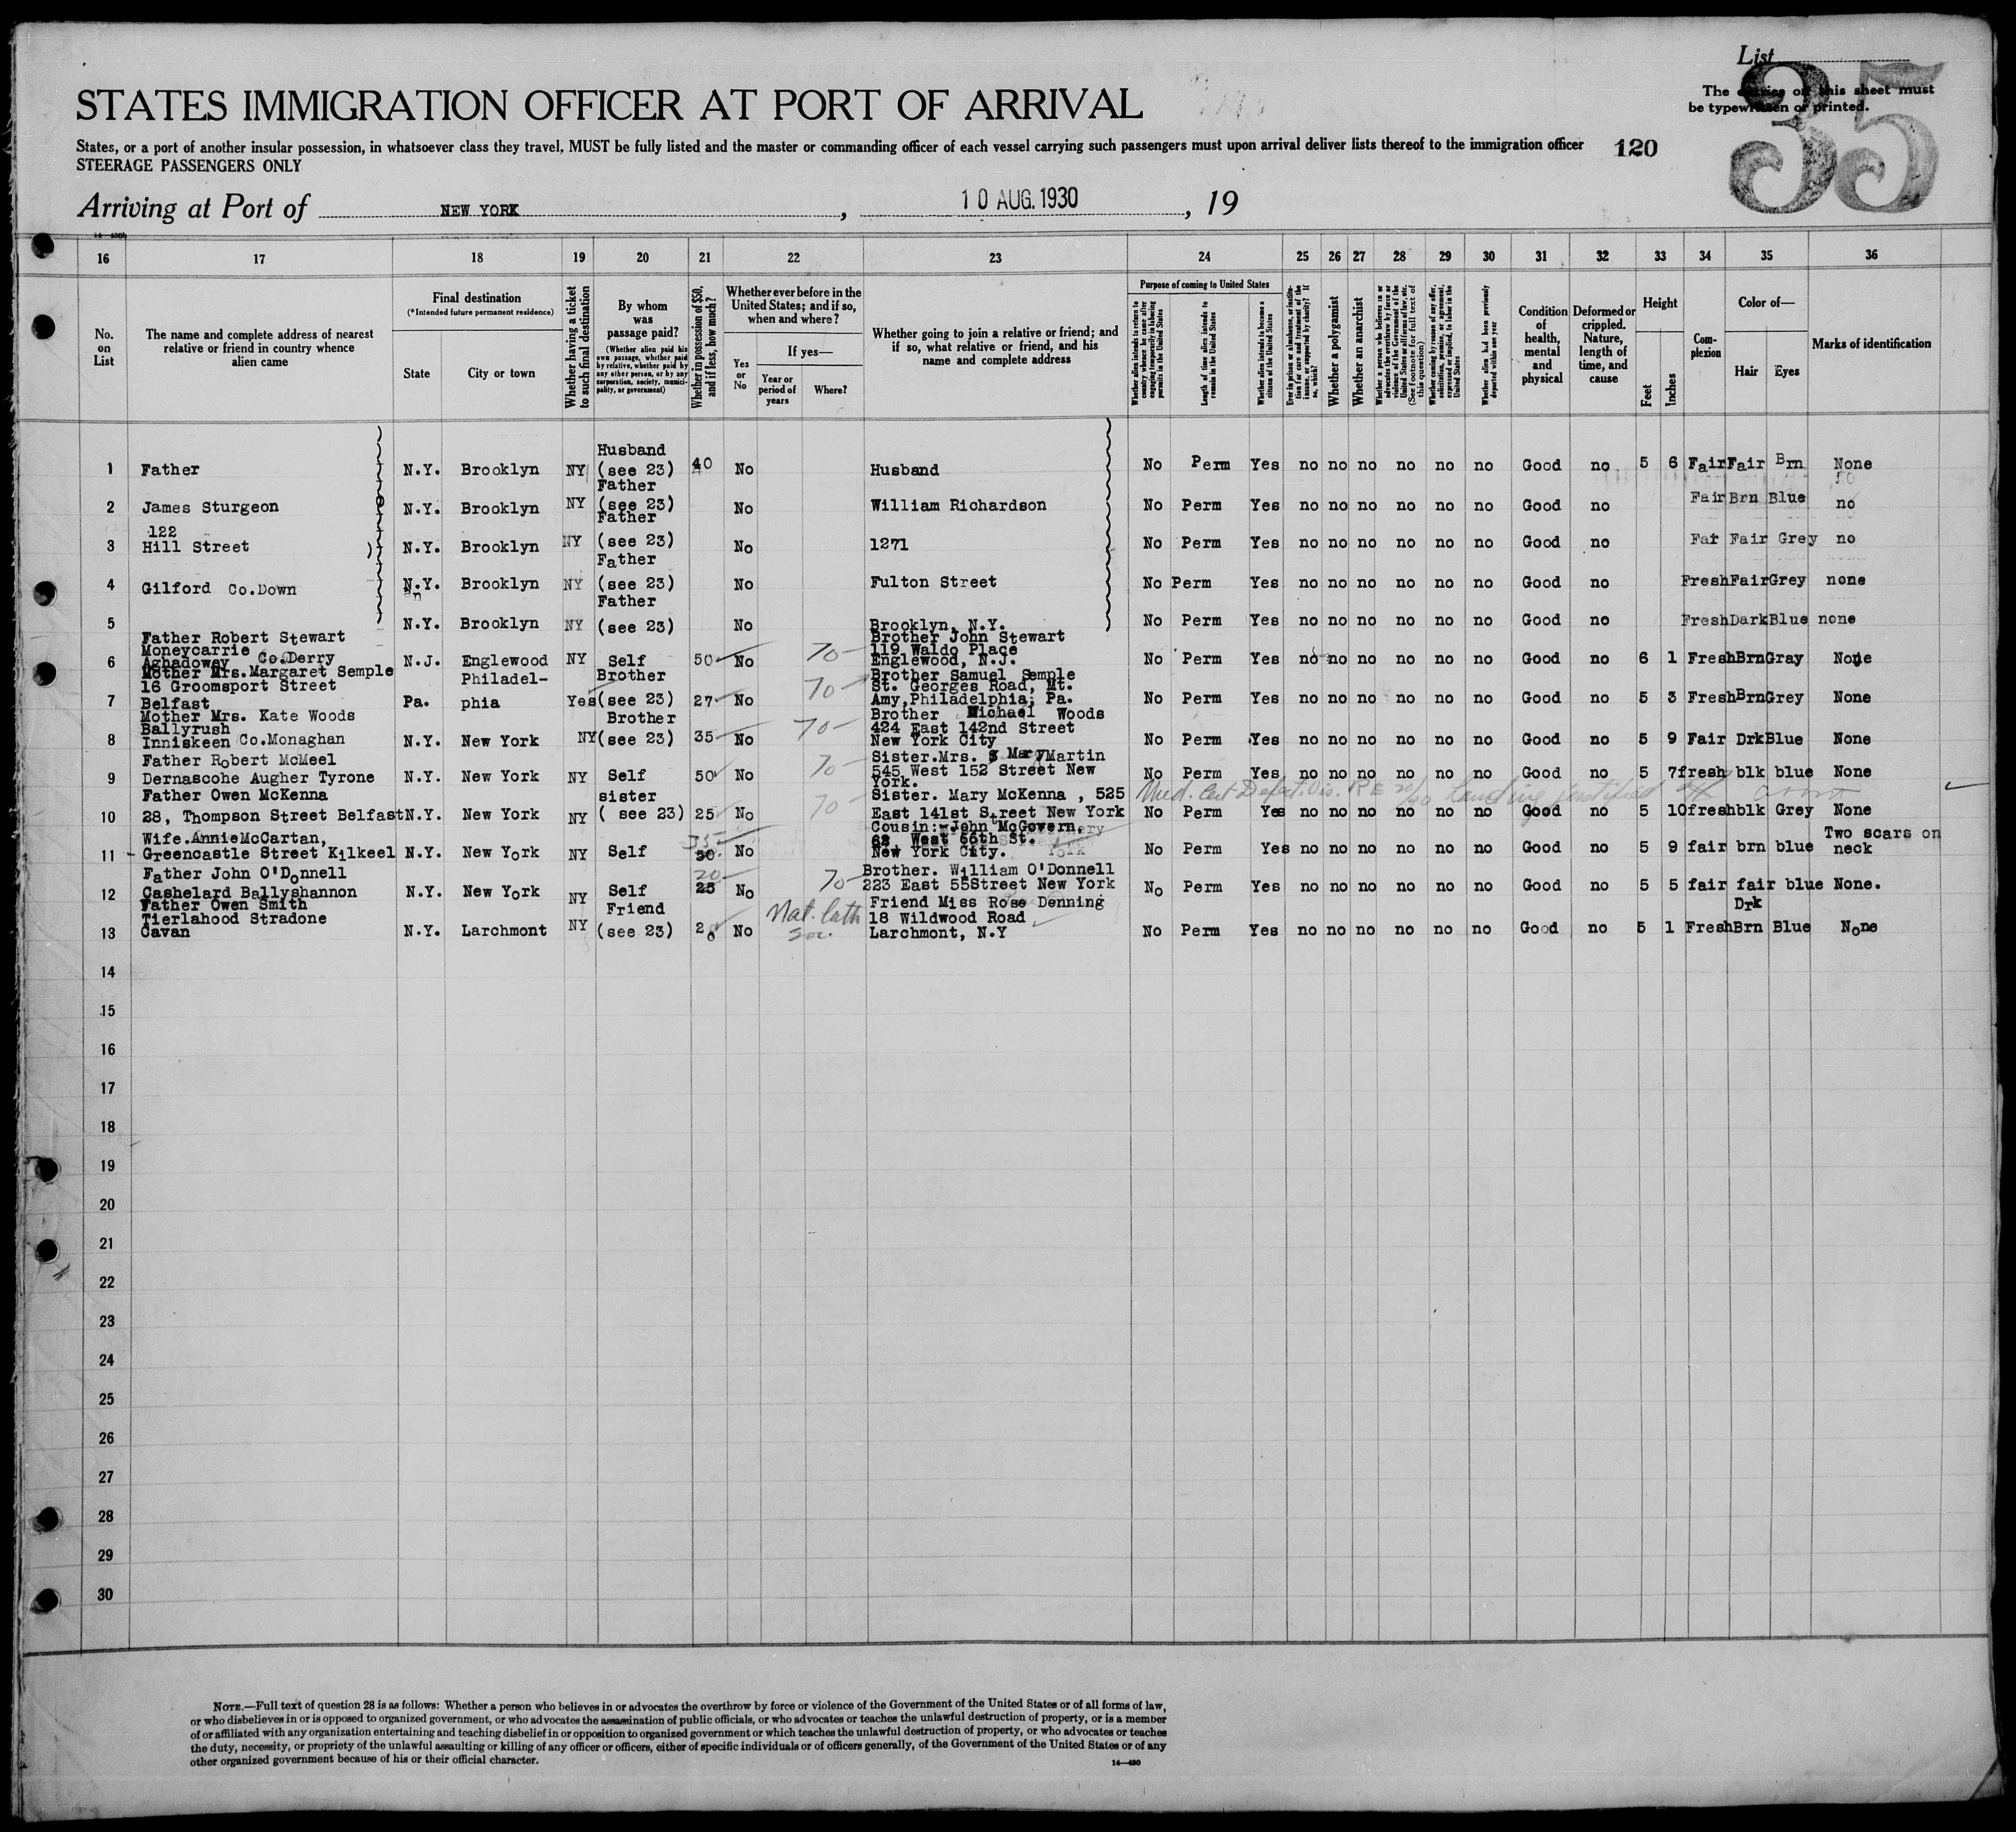 List
35
The entries on this sheet must
be typewritten or printed.
STATES IMMIGRATION OFFICER AT PORT OF ARRIVAL
States, or a port of another insular possession, in whatsoever class they travel, MUST be fully listed and the master or commanding officer of each vessel carrying such passengers must upon arrival deliver lists thereof to the immigration officer
120
STEERAGE PASSENGERS ONLY
Arriving at Port of NEW YORK, 10 AUG. 1930, 19
16 17 18 19 20 21 22 23 24 25 26 27 28 29 30 31 32 33 34 35 36
No. on List
The name and complete address of nearest relative or friend in country whence alien came
Final destination
(*Intended future permanent residence)
State
City or town
Whether having a ticket to such final destination
By whom was passage paid?
(Whether alien paid his own passage, whether paid by relative, whether paid by any other person, or by any corporation, society, municipality, or government)
Whether in possession of $50, and if less, how much?
Whether ever before in the United States; and if so, when and where?
Yes or No
If yes—
Year or period of years
Where?
Whether going to join a relative or friend; and if so, what relative or friend, and his name and complete address
Purpose of coming to United States
Whether alien intends to return to country whence he came after engaging temporarily in laboring pursuits in the United States
Length of time alien intends to remain in the United States
Whether alien intends to become a citizen of the United States
Ever in prison or almshouse, or institution for care and treatment of the insane, or supported by charity? If so, which?
Whether a polygamist
Whether an anarchist
Whether a person who believes in or advocates the overthrow by force or violence of the Government of the United States or all forms of law, etc. (See footnote for full text of this question)
Whether coming by reason of any offer, solicitation, promise, or agreement, expressed or implied, to labor in the United States
Whether alien had been previously deported within one year
Condition of health, mental and physical
Deformed or crippled. Nature, length of time, and cause
Height
Feet
Inches
Complexion
Color of—
Hair
Eyes
Marks of identification
1 Father N.Y. Brooklyn NY Husband (see 23) 40 No Husband No Perm Yes no no no no no no Good no 5 6 Fair Fair Brn None
2 James Sturgeon N.Y. Brooklyn NY Father (see 23) No William Richardson No Perm Yes no no no no no no Good no Fair Brn Blue no
3 122 Hill Street N.Y. Brooklyn NY Father (see 23) No 1271 No Perm Yes no no no no no no Good no Fair Grey no
4 Gilford Co.Down N.Y. Brooklyn NY Father (see 23) No Fulton Street No Perm Yes no no no no no no Good no Fresh Fair Grey none
5 N.Y. Brooklyn NY Father (see 23) No Brooklyn, N.Y. No Perm Yes no no no no no no Good no Fresh Dark Blue none
6 Father Robert Stewart Moneycarrie Aghadowey Co.Derry N.J. Englewood NY Self 50 No 70- Brother John Stewart 119 Waldo Place Englewood, N.J. No Perm Yes no no no no no no Good no 6 1 Fresh Brn Gray None
7 Mother Mrs.Margaret Semple 16 Groomsport Street Belfast Pa. Philadel-phia Yes Brother (see 23) 27 No 70- Brother Samuel Semple St. Georges Road, Mt. Amy,Philadelphia, Pa. No Perm Yes no no no no no no Good no 5 3 Fresh Brn Grey None
8 Mother Mrs. Kate Woods Ballyrush Inniskeen Co.Monaghan N.Y. New York NY Brother (see 23) 35 No 70- Brother Michael Woods 424 East 142nd Street New York City No Perm Yes no no no no no no Good no 5 9 Fair Drk Blue None
9 Father Robert McMeel Dernascohe Augher Tyrone N.Y. New York NY Self 50 No 70- Sister.Mrs. Mary Martin 545 West 152 Street New York. No Perm Yes no no no no no no Good no 5 7 fresh blk blue None
Med. Cert Defect. Vis. R E 20/40 Landing
10 Father Owen McKenna 28, Thompson Street Belfast N.Y. New York NY sister ( see 23) 25 No 70 Sister. Mary McKenna , 525 East 141st Street New York No Perm Yes no no no no no no Good no 5 10 fresh blk Grey None
11 Wife.Annie McCartan, Greencastle Street Kilkeel N.Y. New York NY Self 35 30 No Cousin:-John McGovern, 62 West 66th St. New York City. No Perm Yes no no no no no no Good no 5 9 fair brn blue Two scars on neck
12 Father John O'Donnell Cashelard Ballyshannon N.Y. New York NY Self 20 25 No 70- Brother. William O'Donnell 223 East 55Street New York No Perm Yes no no no no no no Good no 5 5 fair fair blue None.
13 Father Owen Smith Tierlahood Stradone Cavan N.Y. Larchmont NY Friend (see 23) No Nat. Cath Soc. Friend Miss Rose Denning 18 Wildwood Road Larchmont, N.Y No Perm Yes no no no no no no Good no 5 1 Fresh Drk Brn Blue None
14
15
16
17
18
19
20
21
22
23
24
25
26
27
28
29
30
NOTE.—Full text of question 28 is as follows: Whether a person who believes in or advocates the overthrow by force or violence of the Government of the United States or of all forms of law,
or who disbelieves in or is opposed to organized government, or who advocates the assassination of public officials, or who advocates or teaches the unlawful destruction of property, or is a member
of or affiliated with any organization entertaining and teaching disbelief in or opposition to organized government or which teaches the unlawful destruction of property, or who advocates or teaches
the duty, necessity, or propriety of the unlawful assaulting or killing of any officer or officers, either of specific individuals or of officers generally, of the Government of the United States or of any
other organized government because of his or their official character.
14—430